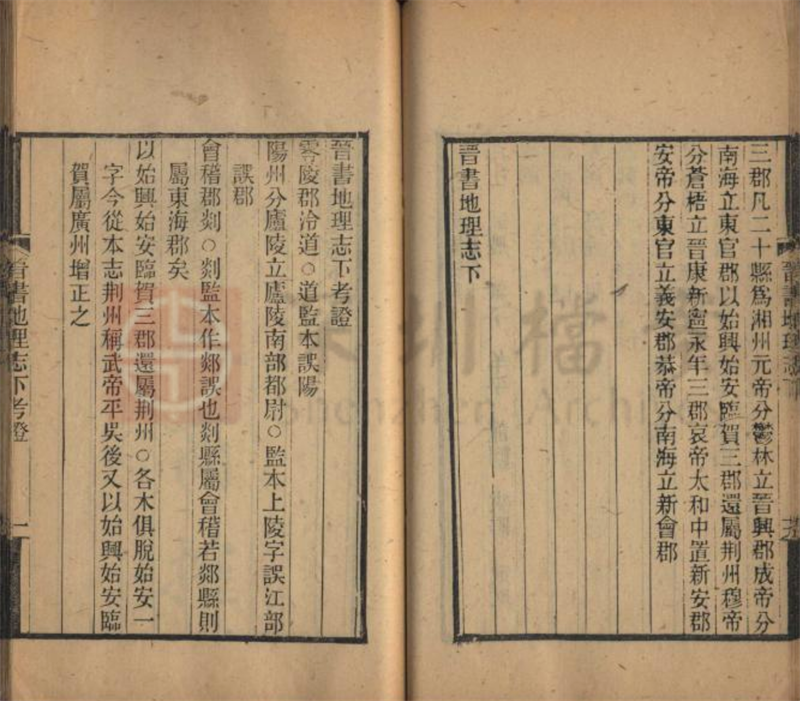 三郡凡二十縣爲湘州元帝分鬱林立晉興郡成帝分
南海立東官郡以始興始安臨賀三郡還屬荆州穆帝
分蒼梧立晉康新寧永年三郡哀帝太和中置新安郡
安帝分東官立義安郡恭帝分南海立新會郡
晉書地理志下
晉書地理志下考證
零陵郡泠道○道監本誤陽
陽州分廬陵立廬陵南部都尉○監本上陵字誤江部
誤郡
會稽郡剡○剡監本作郯誤也剡縣屬會稽若郯縣則
屬東海郡矣
以始興始安臨賀三郡還屬荆州○各木俱脫始安一
字今從本志荆州稱武帝平吳後又以始興始安臨
賀屬廣州增正之
晉書地理志下考證
一